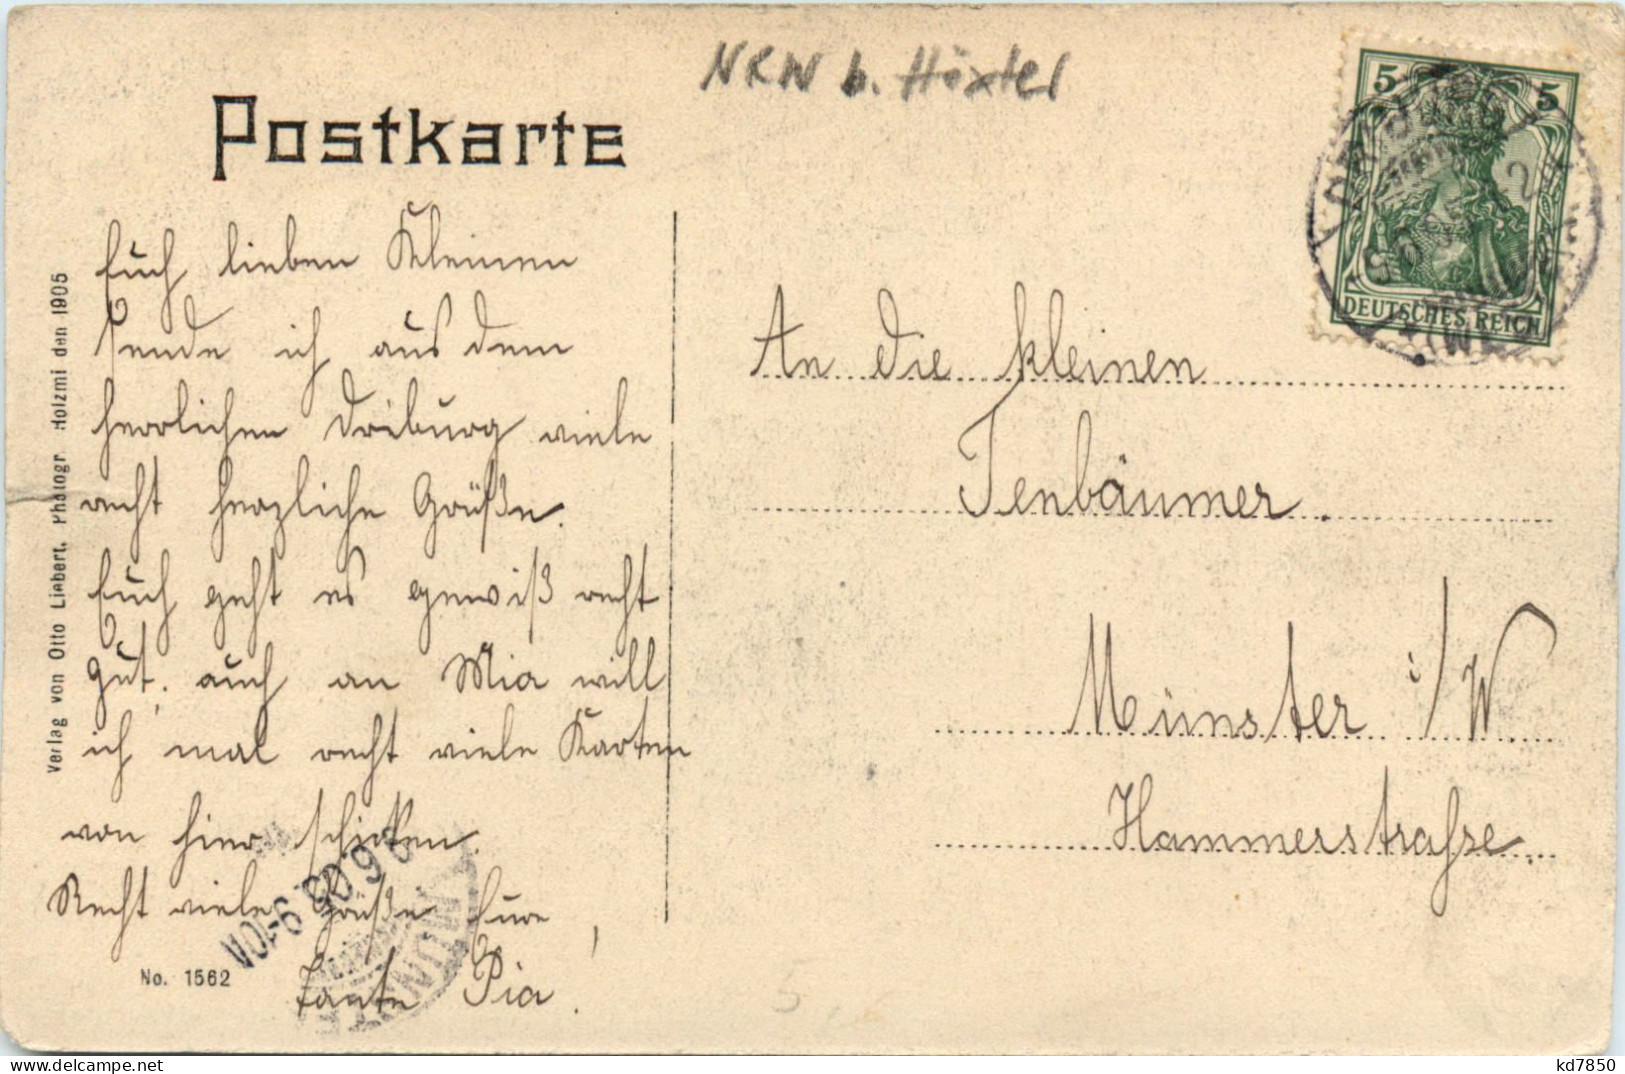 NRW b. Höxter
Postkarte
5 5
DEUTSCHES REICH
Euch lieben Kleinen
sende ich aus dem
herrlichen Driburg viele
recht herzliche Grüße.
Euch geht es gewiß recht
gut, auch an Mia will
ich mal recht viele Karten
von hier schicken.
Recht viele Grüße Eure
Tante Pia.
An die kleinen
Tenbäumer.
Münster i/W.
Hammerstrasse.
Verlag von Otto Liebert, Photogr. Holzminden 1905
No. 1562
9-10V
hippostcard
kd7850
delcampe.net